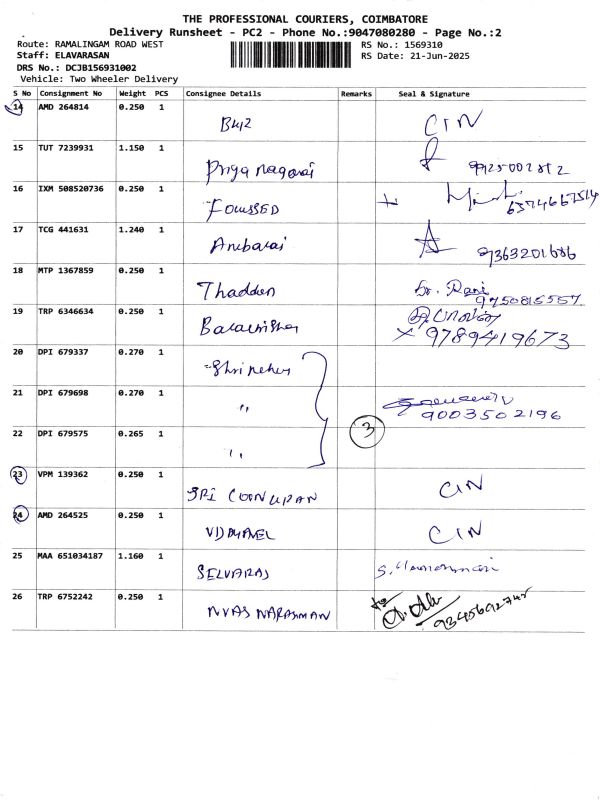 THE PROFESSIONAL COURIERS, COIMBATORE
Delivery Runsheet - PC2 - Phone No.:9047080280 - Page No.:2
Route: RAMALINGAM ROAD WEST RS No.: 1569310
Staff: ELAVARASAN RS Date: 21-Jun-2025
DRS No.: DCJB156931002
Vehicle: Two Wheeler Delivery
S No Consignment No Weight PCS Consignee Details Remarks Seal & Signature
14 AMD 264814 0.250 1 CIN
15 TUT 7239931 1.150 1 Priya nagaraj
16 IXM 508520736 0.250 1 FOCUSSED
17 TCG 441631 1.240 1 Ambarai 9363201686
18 MTP 1367859 0.250 1 Thadden 9750815557
19 TRP 6346634 0.250 1 9789419673
20 DPI 679337 0.270 1
21 DPI 679698 0.270 1 " 9003502196
22 DPI 679575 0.265 1 " 3
23 VPM 139362 0.250 1 SRI CIN
24 AMD 264525 0.250 1 CIN
25 MAA 651034187 1.160 1 SELVARAJ
26 TRP 6752242 0.250 1